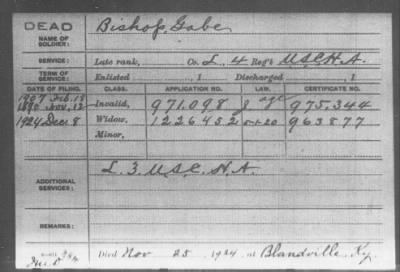 DEAD
NAME OF
SOLDIER:
Bishop, Gabe
SERVICE:
Late rank, Co. L, 4 Reg't U.S.C.H.A.
TERM OF
SERVICE:
Enlisted , 1 Discharged , 1
DATE OF FILING. CLASS. APPLICATION NO. LAW. CERTIFICATE NO.
1907 Feb. 18 age
1890 Nov. 12 Invalid, 971.098 975.344
1924 Dec 8 Widow, 1226452 5-1-20 963877
Minor,
ADDITIONAL
SERVICES:
L. 3. U.S.C.H.A.
REMARKS:
Died Nov 25, 1924, at Blandville, Ky.